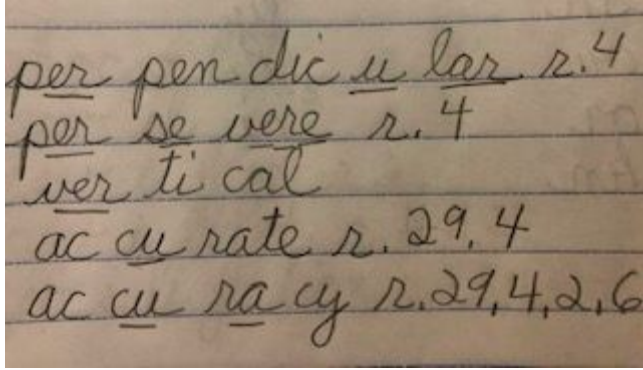 per pen dic u lar r. 4
per se vere r. 4
ver ti cal
ac cu rate r. 29, 4
ac cu ra cy r. 29, 4, 2, 6